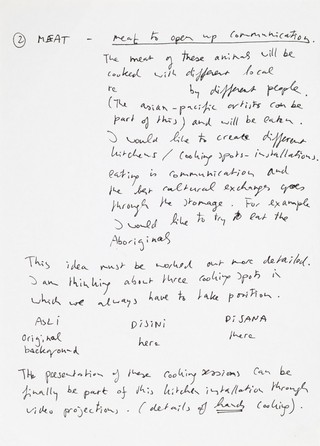 ② MEAT - meat to open up communication.
The meat of these animals will be
cooked with different local
re by different people.
(The asian-pacific artists can be
part of this) and will be eaten.
I would like to create different
kitchens / cooking spots-installations.
eating is communication and
the best cultural exchange goes
through the stomage. For example
I would like to try to eat the
Aboriginals
This idea must be worked out more detailed.
I am thinking about three cooking spots in
which we always have to take position.
ASLI DISINI DISANA
original here there
background
The presentation of these cooking sessions can be
finally be part of this kitchen installation through
video projections. (details of hands cooking).